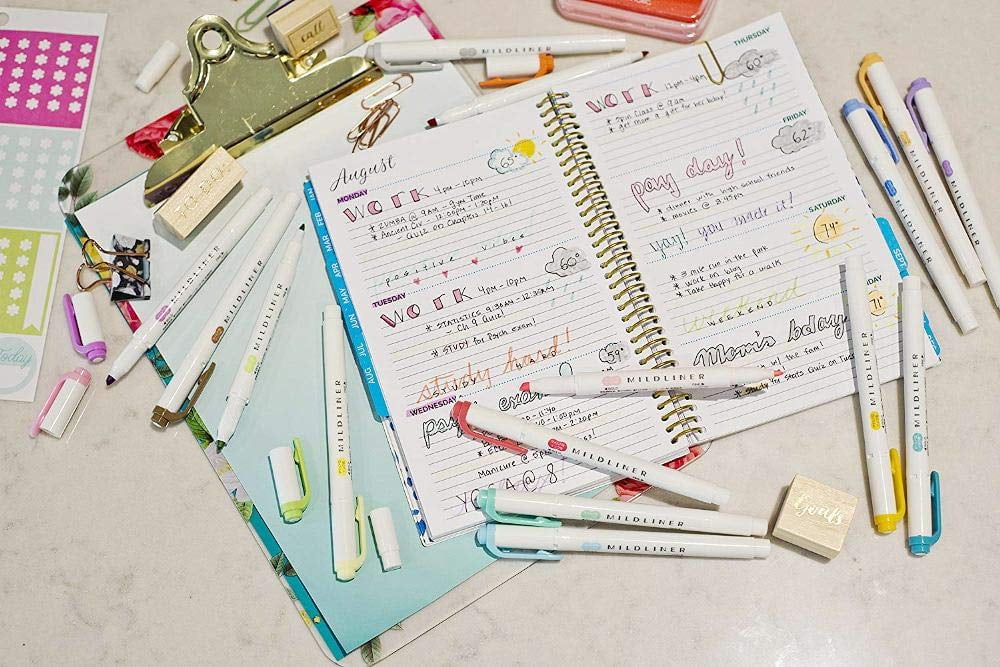 August
MONDAY
WORK 4PM-10PM
65°
* ZUMBA @ 9AM - Gym Time
* Ancient Civ - 12:00PM-1:20PM
- Quiz on Chapters 14-16!
positive vibes
TUESDAY
WORK 4PM-10PM
60°
* STATISTICS 9:30AM-12:30PM
- Ch 9 Quiz!
* STUDY for Psych exam!
study hard!
STUDY HARD
59°
WEDNESDAY
Manicure @
YOGA @ 8!
THURSDAY
WORK 12PM-4PM
60°
* Spin Class @ 9am
* get mom a gift for her bday!
FRIDAY
62°
pay day!
* dinner with high school friends
* movies @ 8:45pm
yay! you made it!
SATURDAY
74°
* 3 mile run in the park
* work on blog
* Take Happy for a walk
weekend
WEEKEND
71°
Mom's bday
w/ the fam!
* study for Stats Quiz on Tues
JAN
FEB
MAR
APR
MAY
JUN
JUL
AUG
SEPT
call
to do
Goals
Today
MILDLINER
MILDLINER
MILDLINER
MILDLINER
MILDLINER
MILDLINER
MILDLINER
MILDLINER
MILDLINER
MILDLINER
MILDLINER
MILDLINER
MILDLINER
MILDLINER